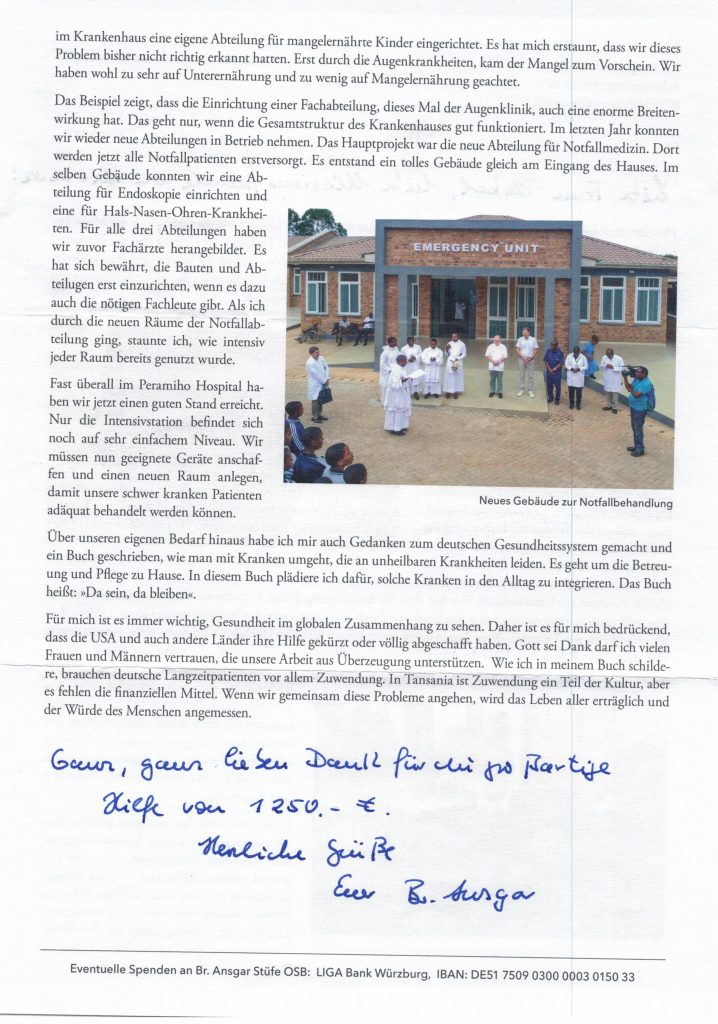 im Krankenhaus eine eigene Abteilung für mangelernährte Kinder eingerichtet. Es hat mich erstaunt, dass wir dieses
Problem bisher nicht richtig erkannt hatten. Erst durch die Augenkrankheiten, kam der Mangel zum Vorschein. Wir
haben wohl zu sehr auf Unterernährung und zu wenig auf Mangelernährung geachtet.
Das Beispiel zeigt, dass die Einrichtung einer Fachabteilung, dieses Mal der Augenklinik, auch eine enorme Breiten-
wirkung hat. Das geht nur, wenn die Gesamtstruktur des Krankenhauses gut funktioniert. Im letzten Jahr konnten
wir wieder neue Abteilungen in Betrieb nehmen. Das Hauptprojekt war die neue Abteilung für Notfallmedizin. Dort
werden jetzt alle Notfallpatienten erstversorgt. Es entstand ein tolles Gebäude gleich am Eingang des Hauses. Im
selben Gebäude konnten wir eine Ab-
teilung für Endoskopie einrichten und
eine für Hals-Nasen-Ohren-Krankhei-
ten. Für alle drei Abteilungen haben
wir zuvor Fachärzte herangebildet. Es
hat sich bewährt, die Bauten und Ab-
teilugen erst einzurichten, wenn es dazu
auch die nötigen Fachleute gibt. Als ich
durch die neuen Räume der Notfallab-
teilung ging, staunte ich, wie intensiv
jeder Raum bereits genutzt wurde.
Fast überall im Peramiho Hospital ha-
ben wir jetzt einen guten Stand erreicht.
Nur die Intensivstation befindet sich
noch auf sehr einfachem Niveau. Wir
müssen nun geeignete Geräte anschaf-
fen und einen neuen Raum anlegen,
damit unsere schwer kranken Patienten
adäquat behandelt werden können.
EMERGENCY UNIT
Neues Gebäude zur Notfallbehandlung
Über unseren eigenen Bedarf hinaus habe ich mir auch Gedanken zum deutschen Gesundheitssystem gemacht und
ein Buch geschrieben, wie man mit Kranken umgeht, die an unheilbaren Krankheiten leiden. Es geht um die Betreu-
ung und Pflege zu Hause. In diesem Buch plädiere ich dafür, solche Kranken in den Alltag zu integrieren. Das Buch
heißt: »Da sein, da bleiben«.
Für mich ist es immer wichtig, Gesundheit im globalen Zusammenhang zu sehen. Daher ist es für mich bedrückend,
dass die USA und auch andere Länder ihre Hilfe gekürzt oder völlig abgeschafft haben. Gott sei Dank darf ich vielen
Frauen und Männern vertrauen, die unsere Arbeit aus Überzeugung unterstützen. Wie ich in meinem Buch schilde-
re, brauchen deutsche Langzeitpatienten vor allem Zuwendung. In Tansania ist Zuwendung ein Teil der Kultur, aber
es fehlen die finanziellen Mittel. Wenn wir gemeinsam diese Probleme angehen, wird das Leben aller erträglich und
der Würde des Menschen angemessen.
Ganz, ganz lieben Dank für die großartige
Hilfe von 1250.- €.
Herzliche Grüße
Euer Br. Ansgar
Eventuelle Spenden an Br. Ansgar Stüfe OSB: LIGA Bank Würzburg, IBAN: DE51 7509 0300 0003 0150 33